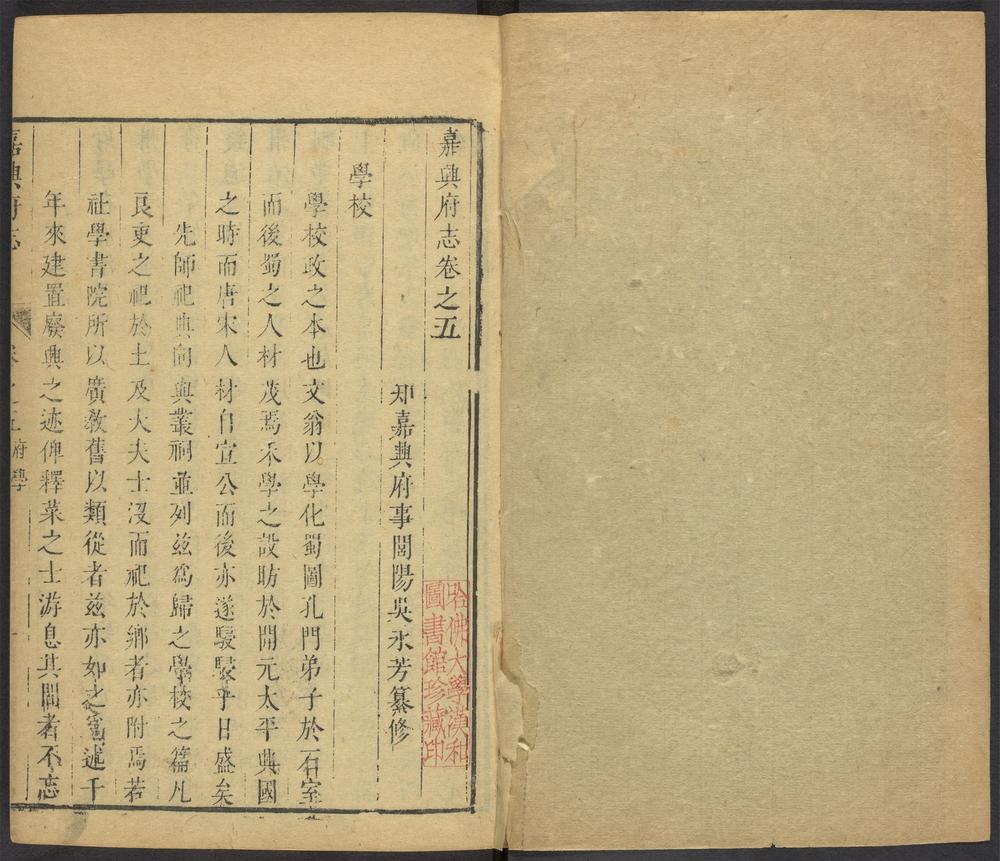 嘉興府志卷之五
知嘉興府事閭陽吳永芳纂修
學校
學校政之本也文翁以學化蜀圖孔門弟子於石室
而後蜀之人材茂焉禾學之設昉於開元太平興國
之時而唐宋人材自宣公而後亦遂駸駸乎日盛矣
先師祀典向與叢祠並列兹爲歸之學校之篇凡
良吏之祀於土及大夫士沒而祀於鄉者亦附焉若
社學書院所以廣教舊以類從者兹亦如之爲述千
年來建置廢興之迹俾釋菜之士游息其間者不忘
嘉興府志
卷之五府學
一
哈佛大學漢和
圖書館珍藏印